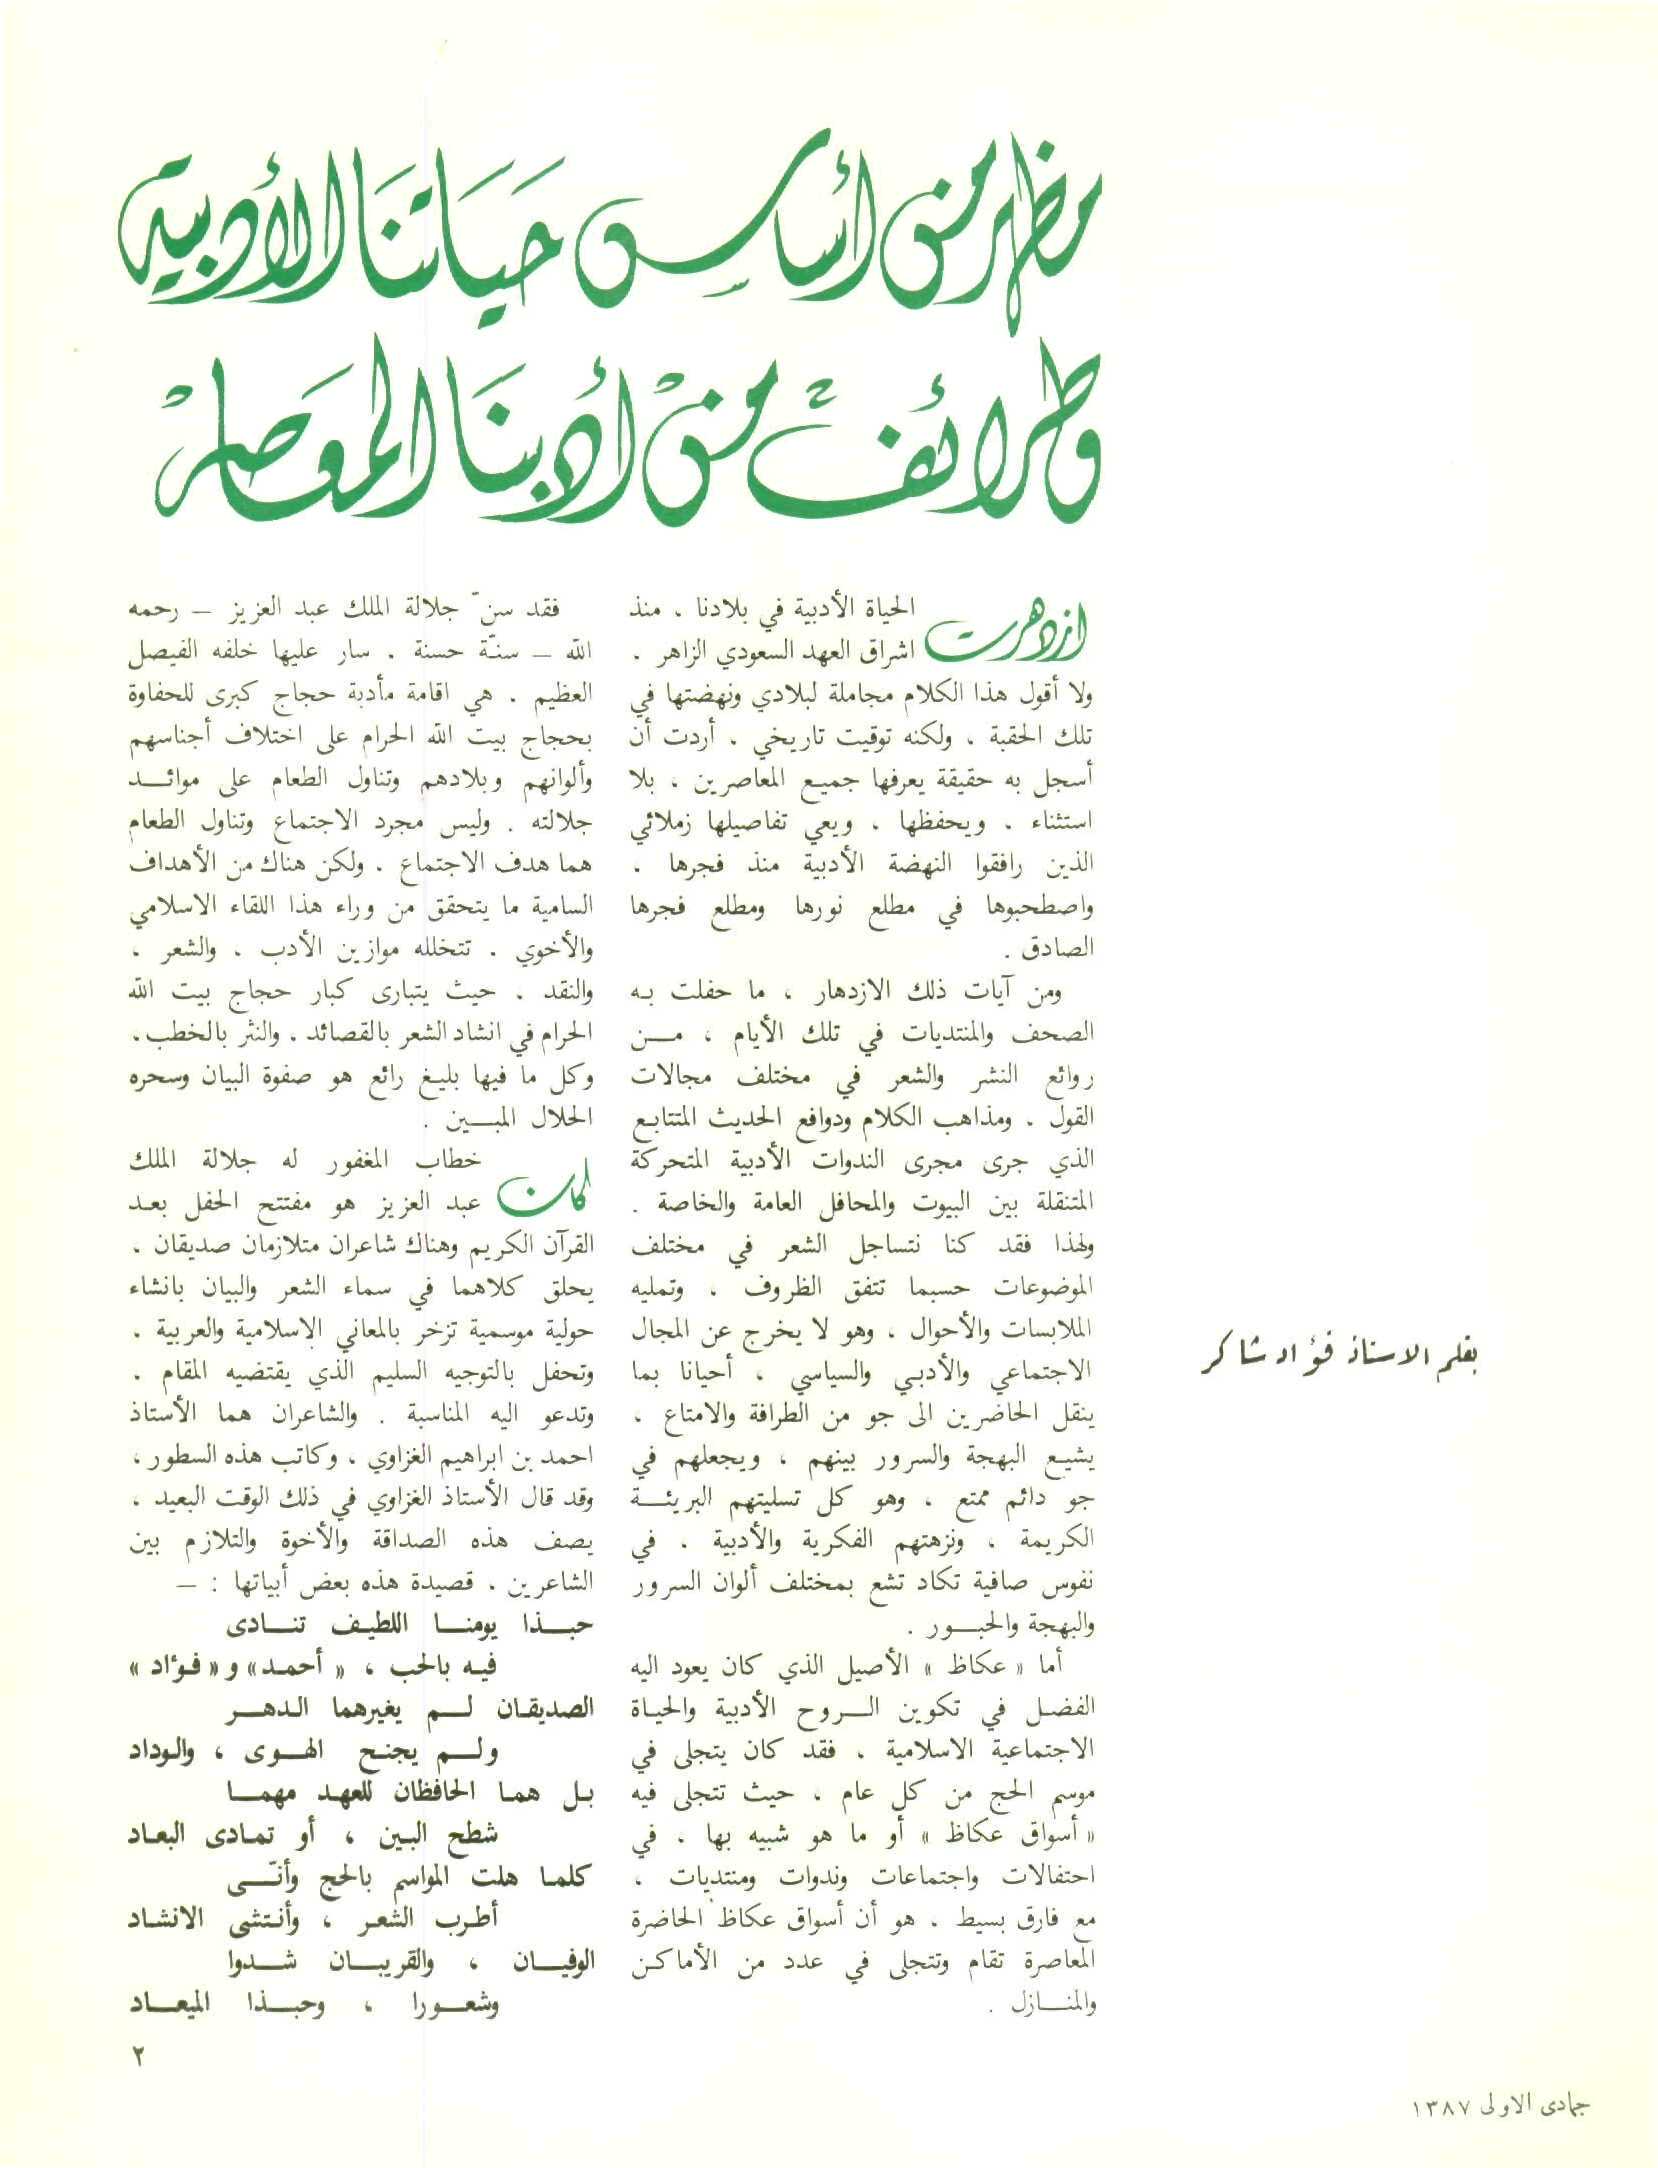 مظهر من أساس حياتنا الأدبية
وطرائف من أدبنا المعاصر
بقلم الاستاذ فؤاد شاكر
ازدهرت الحياة الأدبية في بلادنا ، منذ
اشراق العهد السعودي الزاهر .
ولا أقول هذا الكلام مجاملة لبلادي ونهضتها في
تلك الحقبة ، ولكنه توقيت تاريخي ، أردت أن
أسجل به حقيقة يعرفها جميع المعاصرين ، بلا
استثناء ، ويحفظها ، ويعي تفاصيلها زملائي
الذين رافقوا النهضة الأدبية منذ فجرها ،
واصطحبوها في مطلع نورها ومطلع فجرها
الصادق .
ومن آيات ذلك الازدهار ، ما حفلت بـه
الصحف والمنتديات في تلك الأيام ، مـــن
روائع النشر والشعر في مختلف مجالات
القول ، ومذاهب الكلام ودوافع الحديث المتتابع
الذي جرى مجرى الندوات الأدبية المتحركة
المتنقلة بين البيوت والمحافل العامة والخاصة .
ولهذا فقد كنا نتساجل الشعر في مختلف
الموضوعات حسبما تتفق الظروف ، وتمليه
الملابسات والأحوال ، وهو لا يخرج عن المجال
الاجتماعي والأدبـي والسياسي ، أحيانا بما
ينقل الحاضرين الى جو من الطرافة والامتاع ،
يشيع البهجة والسرور بينهم ، ويجعلهم في
جو دائم ممتع ، وهو كل تسليتهم البريئـــة
الكريمة ، ونزهتهم الفكرية والأدبية ، في
نفوس صافية تكاد تشع بمختلف ألوان السرور
والبهجة والحبـــور .
أما « عكاظ » الأصيل الذي كان يعود اليه
الفضـل في تكوين الـــروح الأدبية والحياة
الاجتماعية الاسلامية ، فقد كان يتجلى في
موسم الحج من كل عام ، حيث تتجلى فيه
« أسواق عكاظ » أو ما هو شبيه بها ، في
احتفالات واجتماعات وندوات ومنتديات ،
مع فارق بسيط ، هو أن أسواق عكاظ الحاضرة
المعاصرة تقام وتتجلى في عدد من الأماكـن
والمنـــازل .
فقد سنّ جلالة الملك عبد العزيز – رحمه
الله – سنّة حسنة ، سار عليها خلفه الفيصل
العظيم ، هي اقامة مأدبة حجاج كبرى للحفاوة
بحجاج بيت الله الحرام على اختلاف أجناسهم
وألوانهم وبلادهم وتناول الطعام على موائـــد
جلالته . وليس مجرد الاجتماع وتناول الطعام
هما هدف الاجتماع ، ولكن هناك من الأهداف
السامية ما يتحقق من وراء هذا اللقاء الاسلامي
والأخوي ، تتخلله موازين الأدب ، والشعر ،
والنقد ، حيث يتبارى كبار حجاج بيت الله
الحرام في انشاد الشعر بالقصائد ، والنثر بالخطب،
وكل ما فيها بليغ رائع هو صفوة البيان وسحره
الحلال المبـــين .
كان خطاب المغفور له جلالة الملك
عبد العزيز هو مفتتح الحفل بعـد
القرآن الكريم وهناك شاعران متلازمان صديقان ،
يحلق كلاهما في سماء الشعر والبيان بانشاء
حولية موسمية تزخر بالمعاني الاسلامية والعربية ،
وتحفل بالتوجيه السليم الذي يقتضيه المقام ،
وتدعو اليه المناسبة . والشاعران هما الأستاذ
احمد بن ابراهيم الغزاوي ، وكاتب هذه السطور ،
وقد قال الأستاذ الغزاوي في ذلك الوقت البعيد ،
يصف هذه الصداقة والأخوة والتلازم بين
الشاعرين ، قصيدة هذه بعض أبياتها : –
حبـــذا يومنـــا اللطيـف تنـــادى
فيـه بالحب ، « أحمـد» و « فـؤاد »
الصديقـان لـــم يغيرهما الـدهـــر
ولـــم يجنـح الهـــوى ، والـوداد
بـل همـا الحافظان للعهـد مهمـــا
شطح البين ، أو تمـادى البعـاد
كلمـا هلت المواسم بالحج وأنّـــى
أطـرب الشعـر ، وأنـتشى الانشـاد
الوفيـــان ، والقريبـــان شـــدوا
وشعـــورا ، وحبـــذا الميعـــاد
٢
جمادى الاولى ١٣٨٧